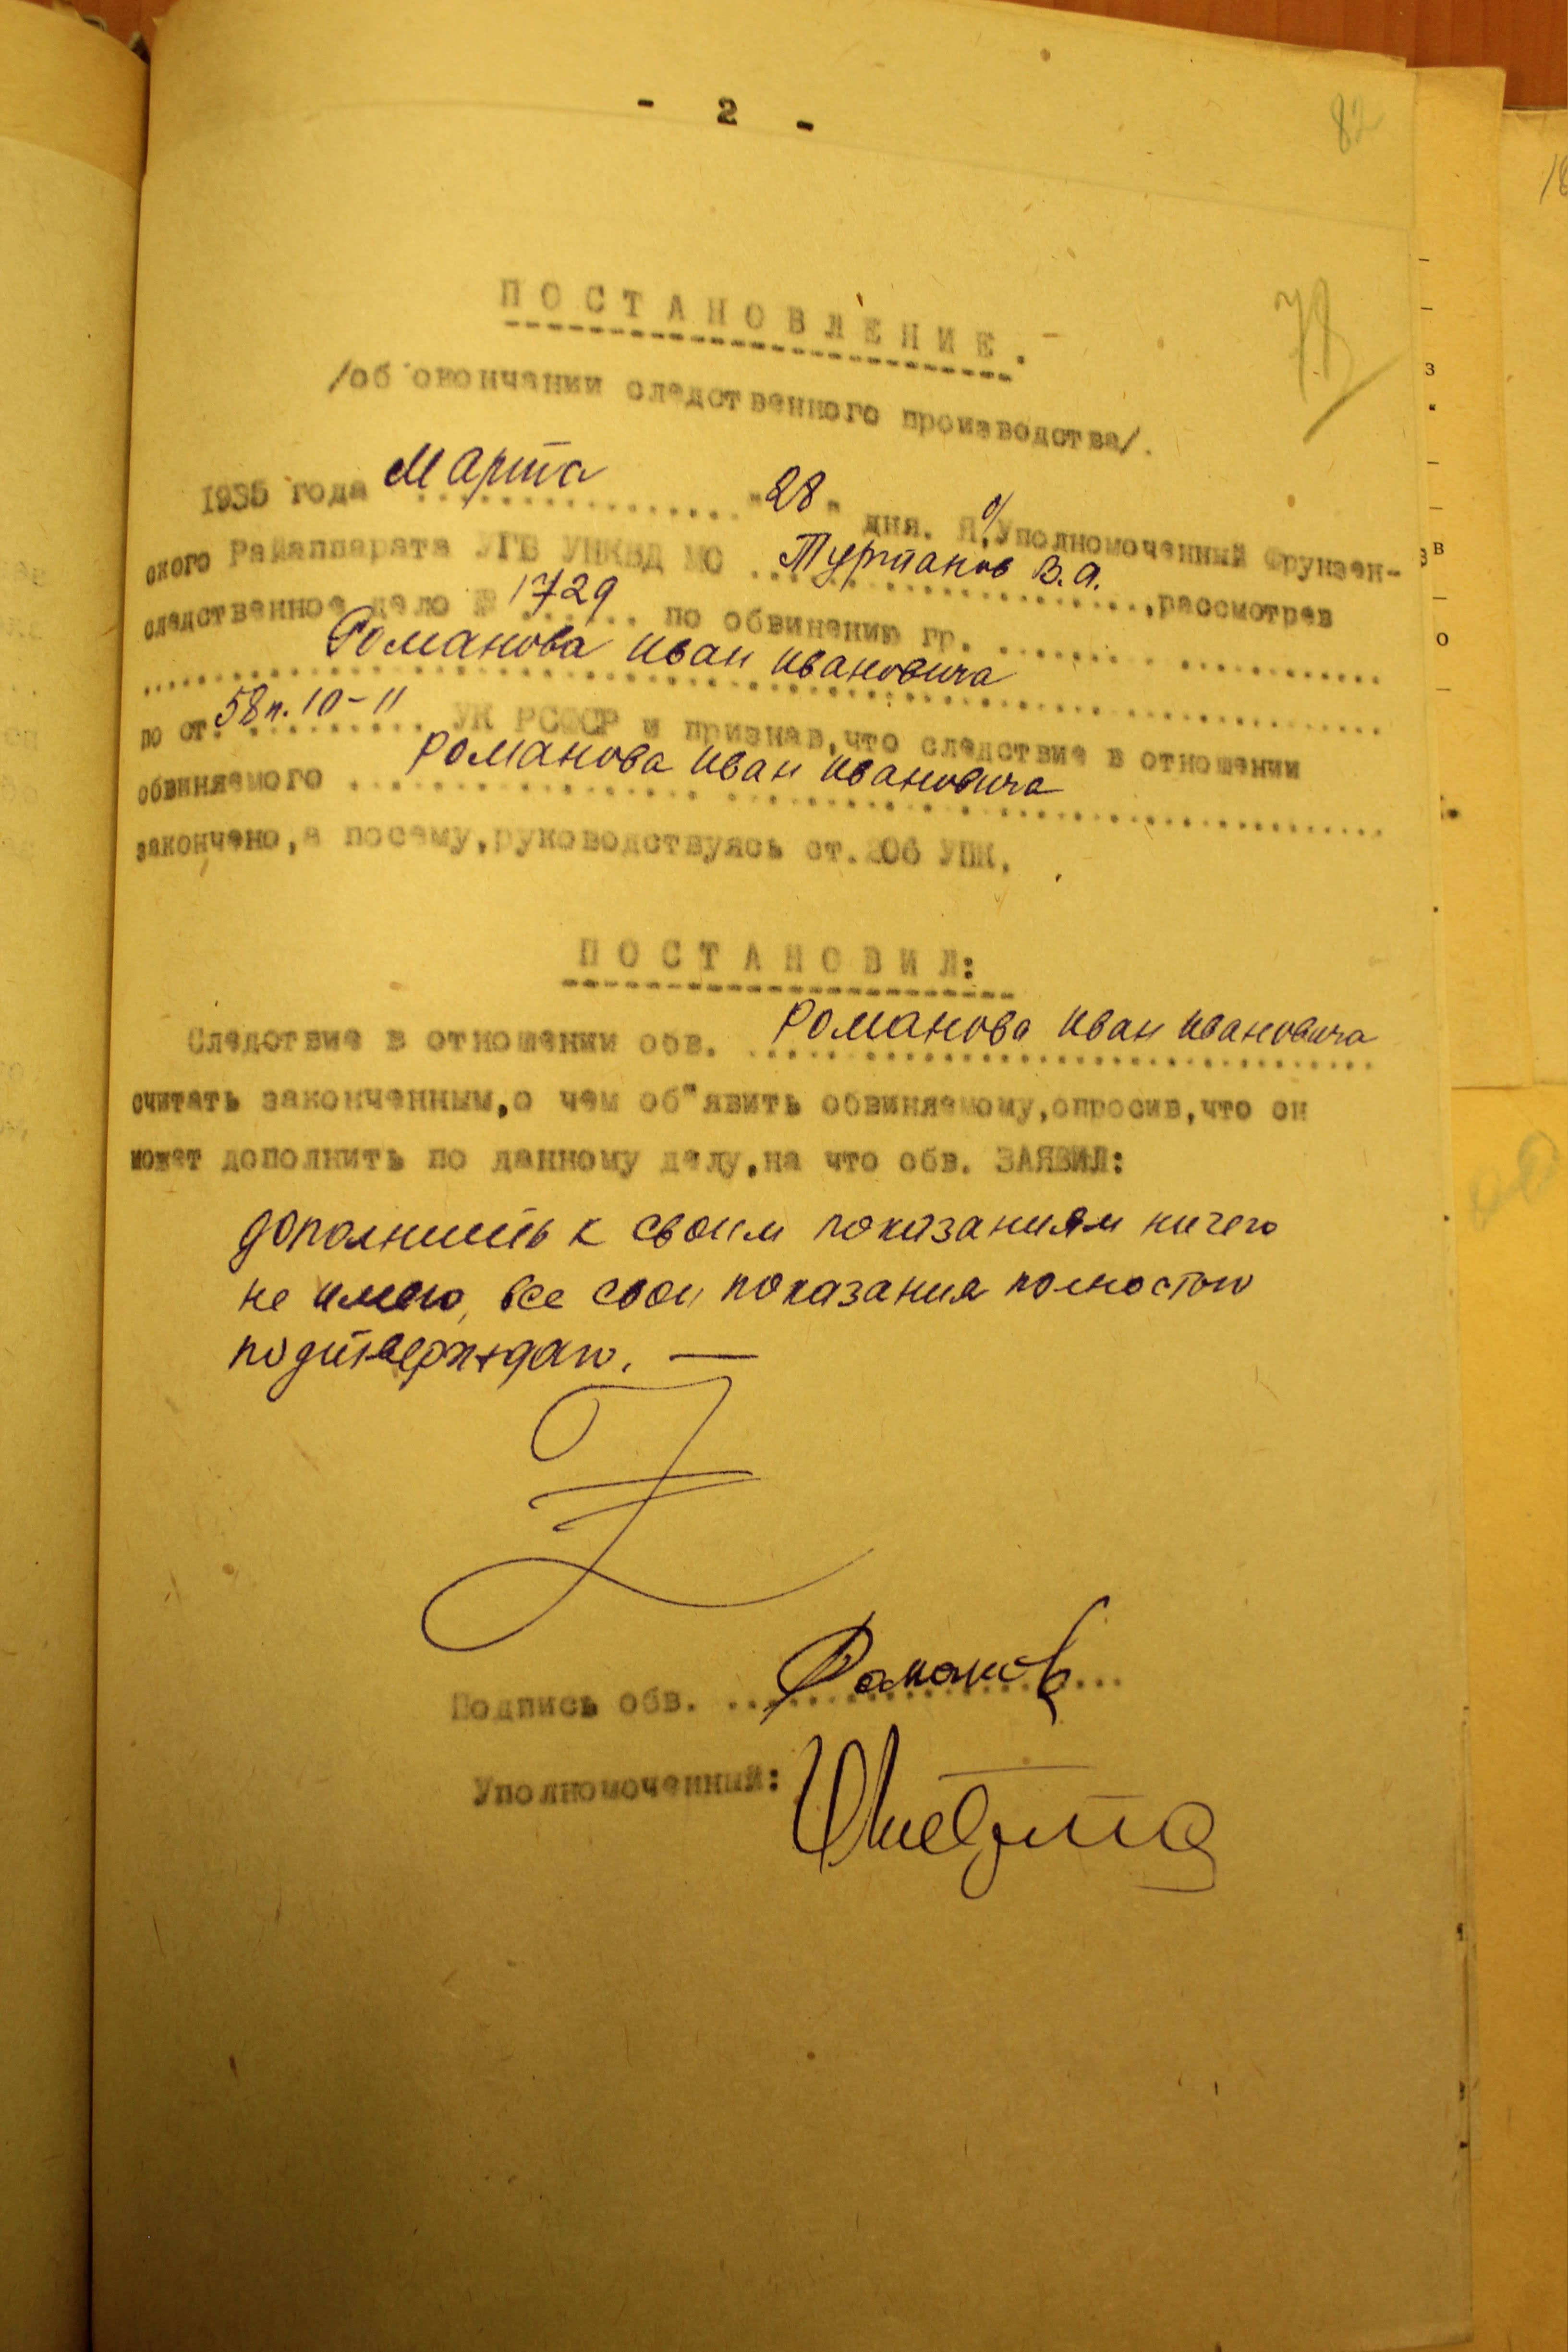 - 2 -
82
ПОСТАНОВЛЕНИЕ.
/об окончании следственного производства/.
1935 года Марта "28" дня. Я, о/Уполномоченный Фрунзен-
ского Райаппарата УГБ УНКВД МО Туртанов В.А. ,рассмотрев
следственное дело № 1729 по обвинению гр.
Романова Иван Ивановича
по ст. 58 п. 10-11 УК РСФСР и признав,что следствие в отношении
обвиняемого Романова Иван Ивановича
закончено,а посему,руководствуясь ст.206 УПК.
ПОСТАНОВИЛ:
Следствие в отношении обв. Романова Иван Ивановича
считать законченным,о чем об"явить обвиняемому,опросив,что он
может дополнить по данному делу,на что обв. ЗАЯВИЛ:
дополнить к своим показаниям ничего
не имею, все свои показания полностью
подтверждаю. —
Подпись обв. Романов
Уполномоченный: